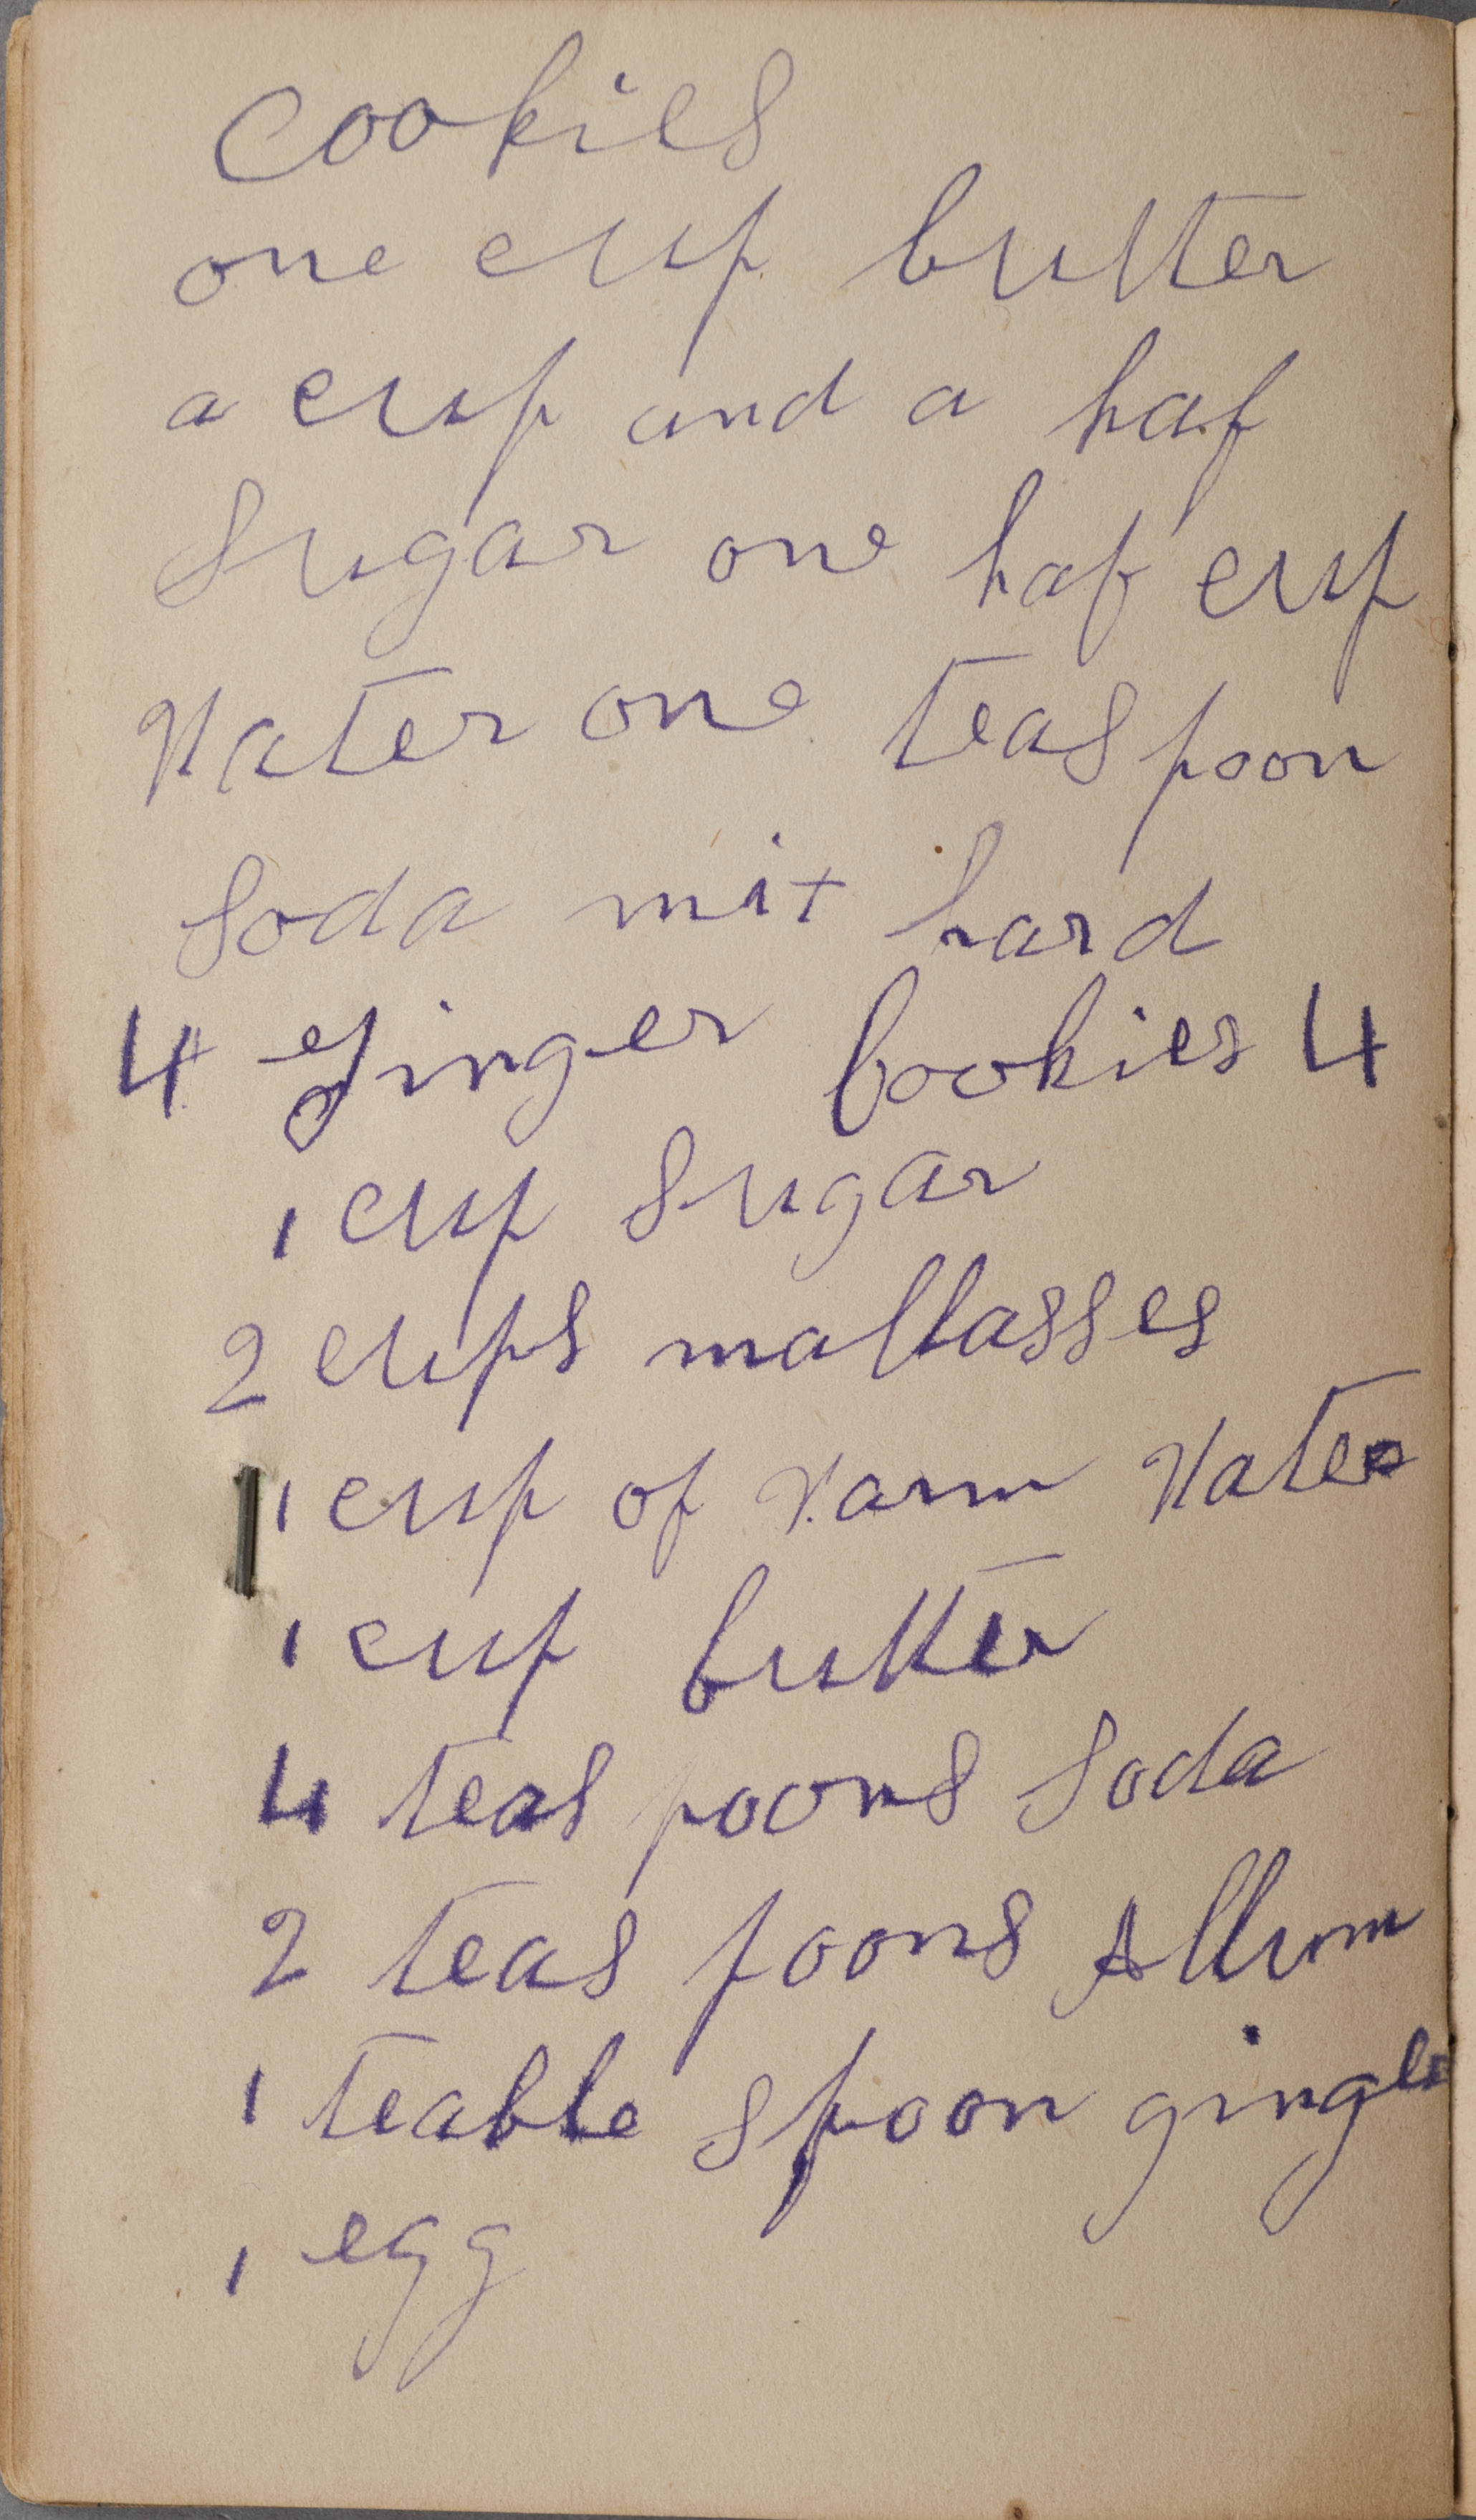 Cookies
one cup butter
a cup and a haf
Sugar one haf cup
Water one teaspoon
Soda mix hard
4 Ginger Cookies 4
1 cup Sugar
2 cups mallasses
1 cup of Warm Water
1 cup butter
4 teas poons Soda
2 teas poons Allum
1 teable spoon ginger
1 egg